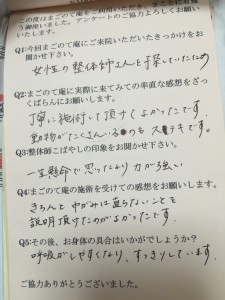 この度はまごのて庵をご利用いただき、まことにありがとう
御座いました。アンケートのご協力よろしくお願い
いたします。
Q1:今回まごのて庵にご来院いただいたきっかけをお
聞かせ下さい。
女性の整体師さんを探していたため
Q2:まごのて庵に実際に来てみての率直な感想をざっ
くばらんにお願いします。
丁寧に施術して頂けてよかったです。
動物がたくさんいるのもステキです。
Q3:整体師こばやしの印象をお聞かせ下さい。
一生懸命で思ったより力が強い
Q4:まごのて庵の施術を受けての感想をお願いします。
きちんとゆがみは直らないことを
説明頂けたのがよかったです。
Q5:その後、お身体の具合はいかがでしょうか?
呼吸がしやすくなり、すっきりしています。
ご協力ありがとうございました。